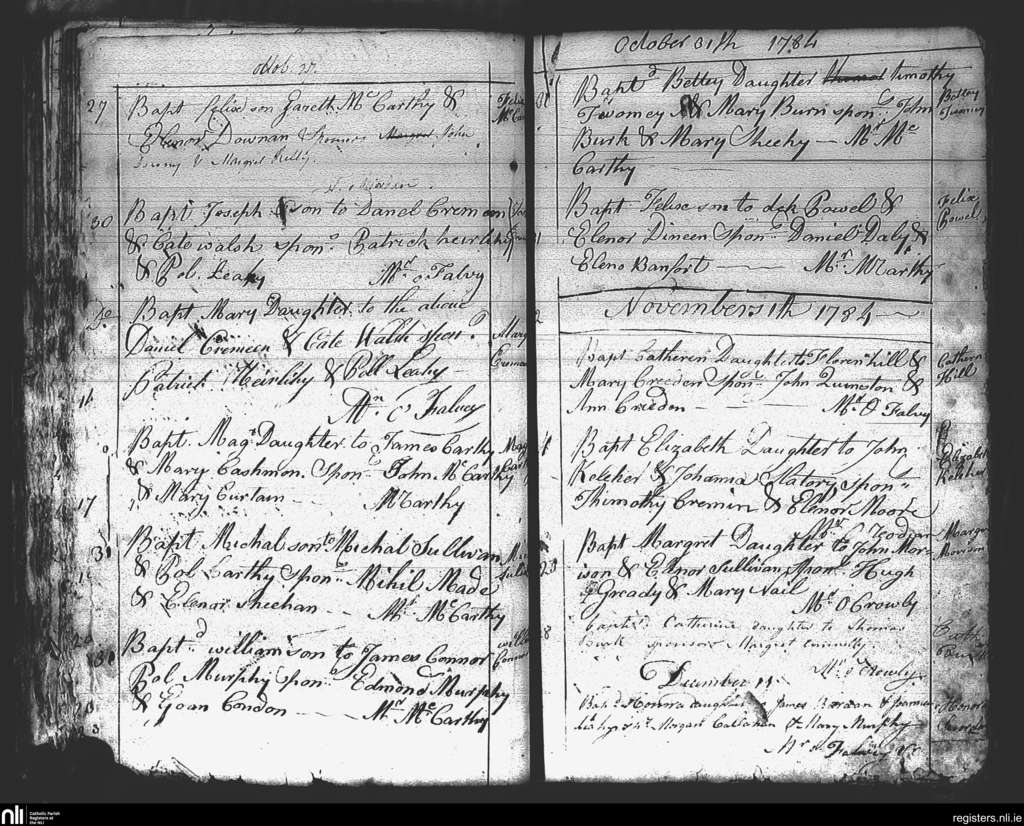 Octob. 27.
27 Bapt Felix son Gareth Mc Carthy &
Elenor Downan & Sponsors John
& Margret Reilly.
30 Bapt Joseph son to Danel Cremeen
& Cate Walsh spons Patrick heirlihy
& Pol. Leahy Mr o Falvy
Do Bapt Mary Daughter to the above
Daniel Cremeen & Cate Walsh spon
Patrick Heirlihy & Poll Leahy
Mr O Falvey
Mary
16
Bapt Mags Daughter to James Carthy
& Mary Cashmon. Spons John McCarthy
& Mary Curtain McCarthy
17
31 Bapt Michal son to Michal Sullivan
& Pol Carthy spons Mihil Made
& Elenor Sheehan Mr McCarthy
31 Baptd william son to James Connor
Pol Murphy spons Edmond Murphy
& Joan Condon Mr McCarthy
October 31th 1784
31 Baptd Bettey Daughter Thomas timothy
Twomey & Mary Burn spons John
Burk & Mary Sheehy — Mr Mc
Carthy
Bettey
Twomey
Bapt Felix son to dek Powel &
Elenor Dineen Spons Daniel Daly &
Eleno Banfort Mr McCarthy
Felix
Powel
November 1th 1784
2 Bapt Catheren Daughter to Floren hill &
Mary Creeden Spons John Quinston &
Ann Creeden Mr O Falvy
Cathern
Hill
4 Bapt Elizabeth Daughter to John
Keleher & Johanna Slatory spons
Thimothy Cremin & Elenor Moore
Elizabet
Keleher
Bapt Margret Daughter to John Mor-
ison & Elinor Sullivan spons Hugh
Gready & Mary Nail
Mr O Crowly
Margret
Morison
28 Baptd Catherine daughter to Thomas
Burk sponsors Margret Connelly
Mr O Crowly
December 11
Bapd Honora daughter James &
Morgan Callahan & Mary Murphy
Mr O Falvy
Honora
nli
Catholic Parish
Registers at
the NLI
registers.nli.ie